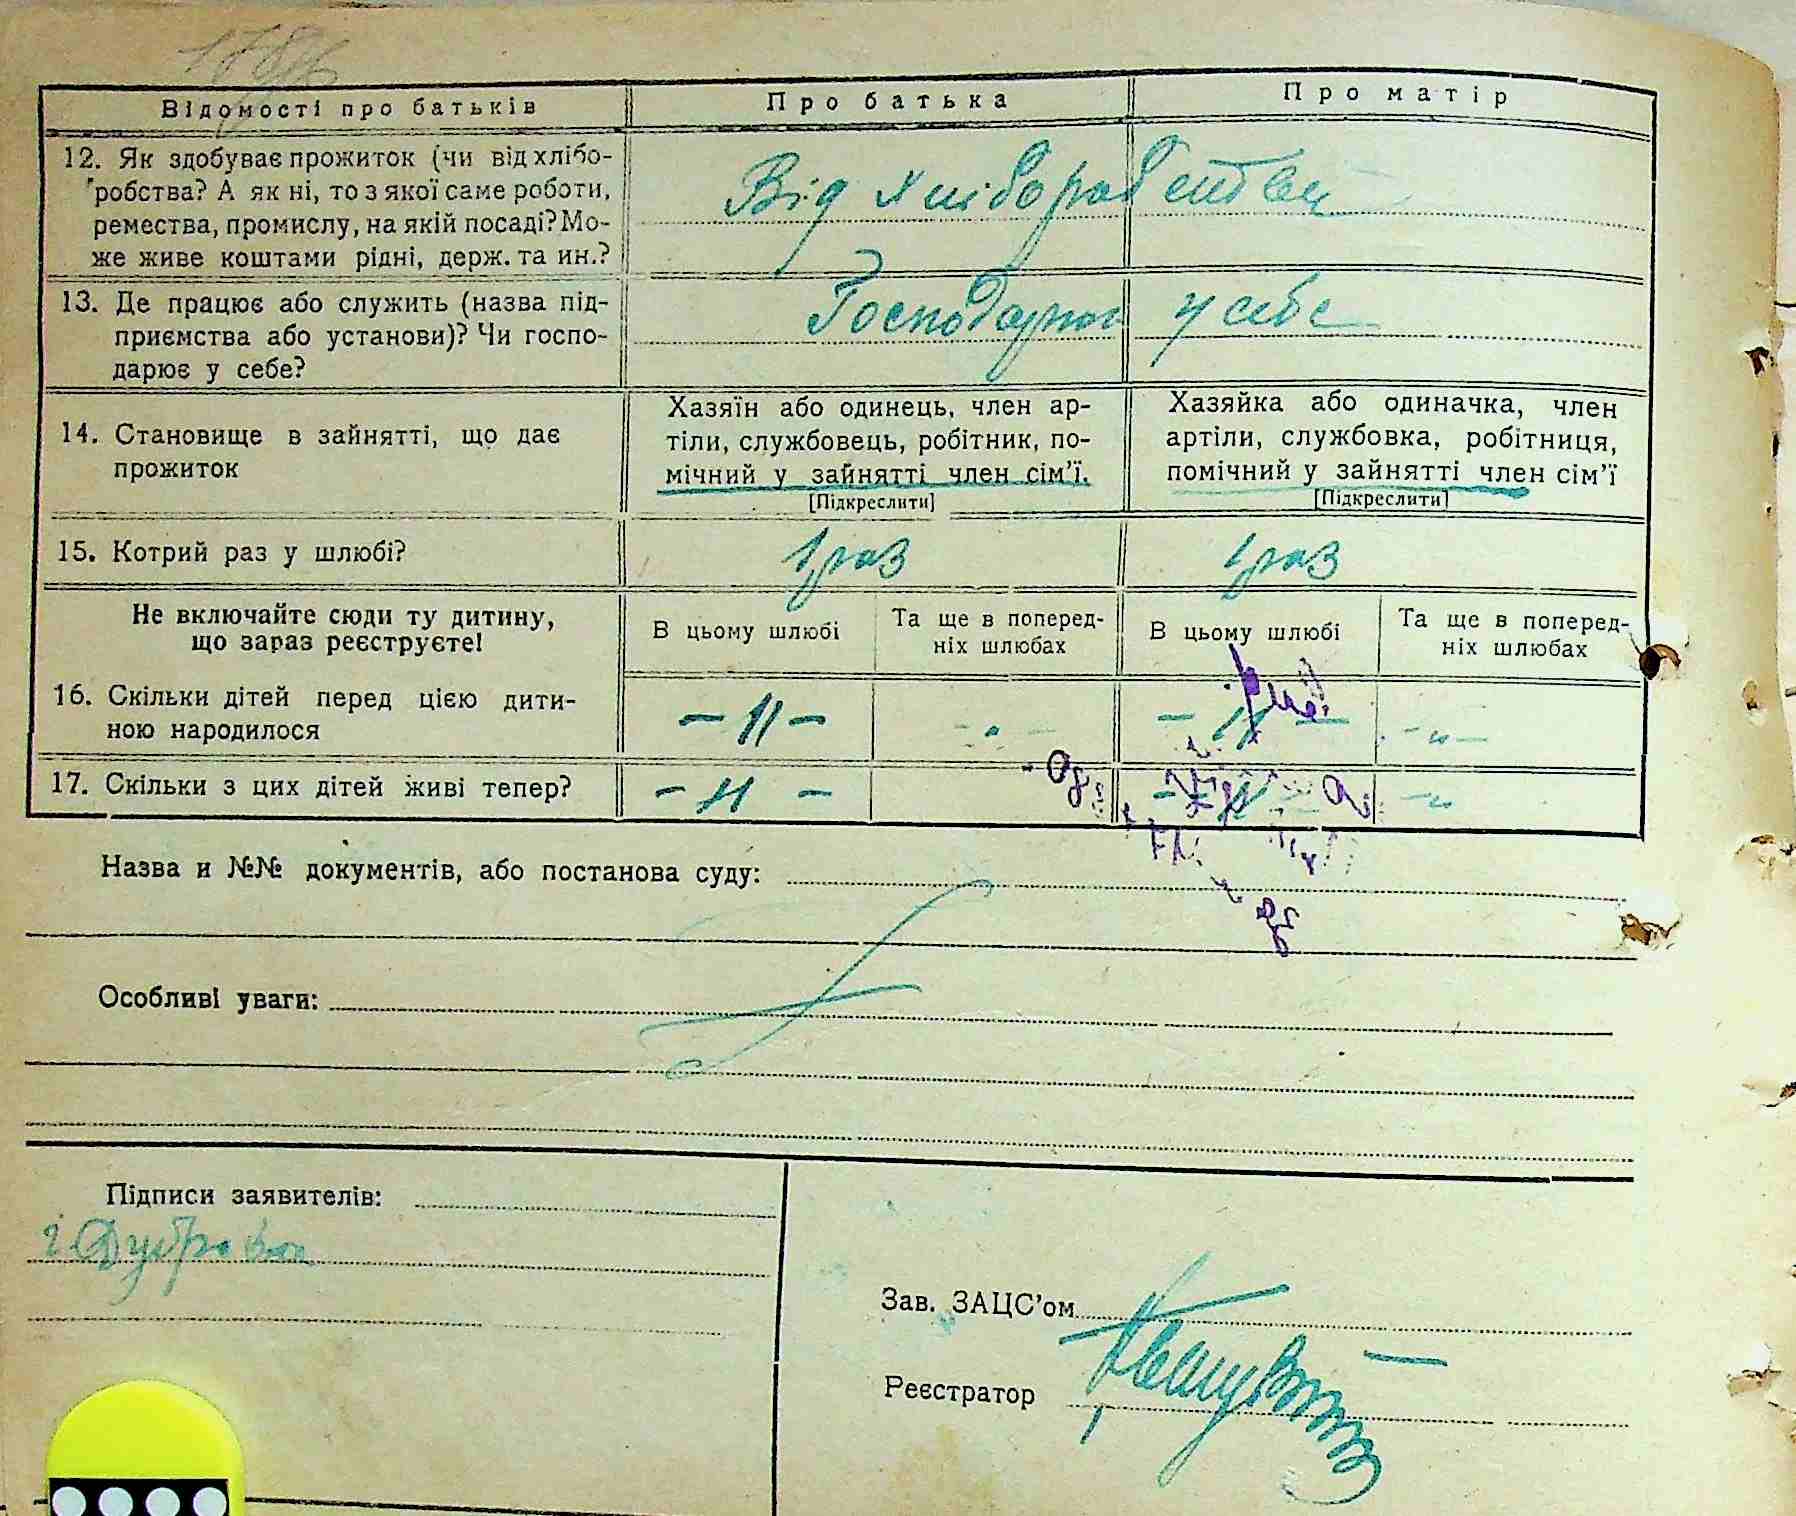 Відомості про батьків
Про батька
Про матір
12. Як здобуває прожиток (чи від хлібо-
робства? А як ні, то з якої саме роботи,
ремества, промислу, на якій посаді? Мо-
же живе коштами рідні, держ. та ин.?
Від хліборобства
13. Де працює або служить (назва під-
приємства або установи)? Чи госпо-
дарює у себе?
Господарює у себе
14. Становище в зайнятті, що дає
прожиток
Хазяїн або одинець, член ар-
тіли, службовець, робітник, по-
мічний у зайнятті член сім'ї.
[Підкреслити]
Хазяйка або одиначка, член
артіли, службовка, робітниця,
помічний у зайнятті член сім'ї
[Підкреслити]
15. Котрий раз у шлюбі?
1 раз
1 раз
Не включайте сюди ту дитину,
що зараз реєструєте!
В цьому шлюбі
Та ще в поперед-
ніх шлюбах
В цьому шлюбі
Та ще в поперед-
ніх шлюбах
16. Скільки дітей перед цією дити-
ною народилося
- 11 -
17. Скільки з цих дітей живі тепер?
Назва и №№ документів, або постанова суду:
Особливі уваги:
Підписи заявителів:
Зав. ЗАЦС'ом
Реєстратор